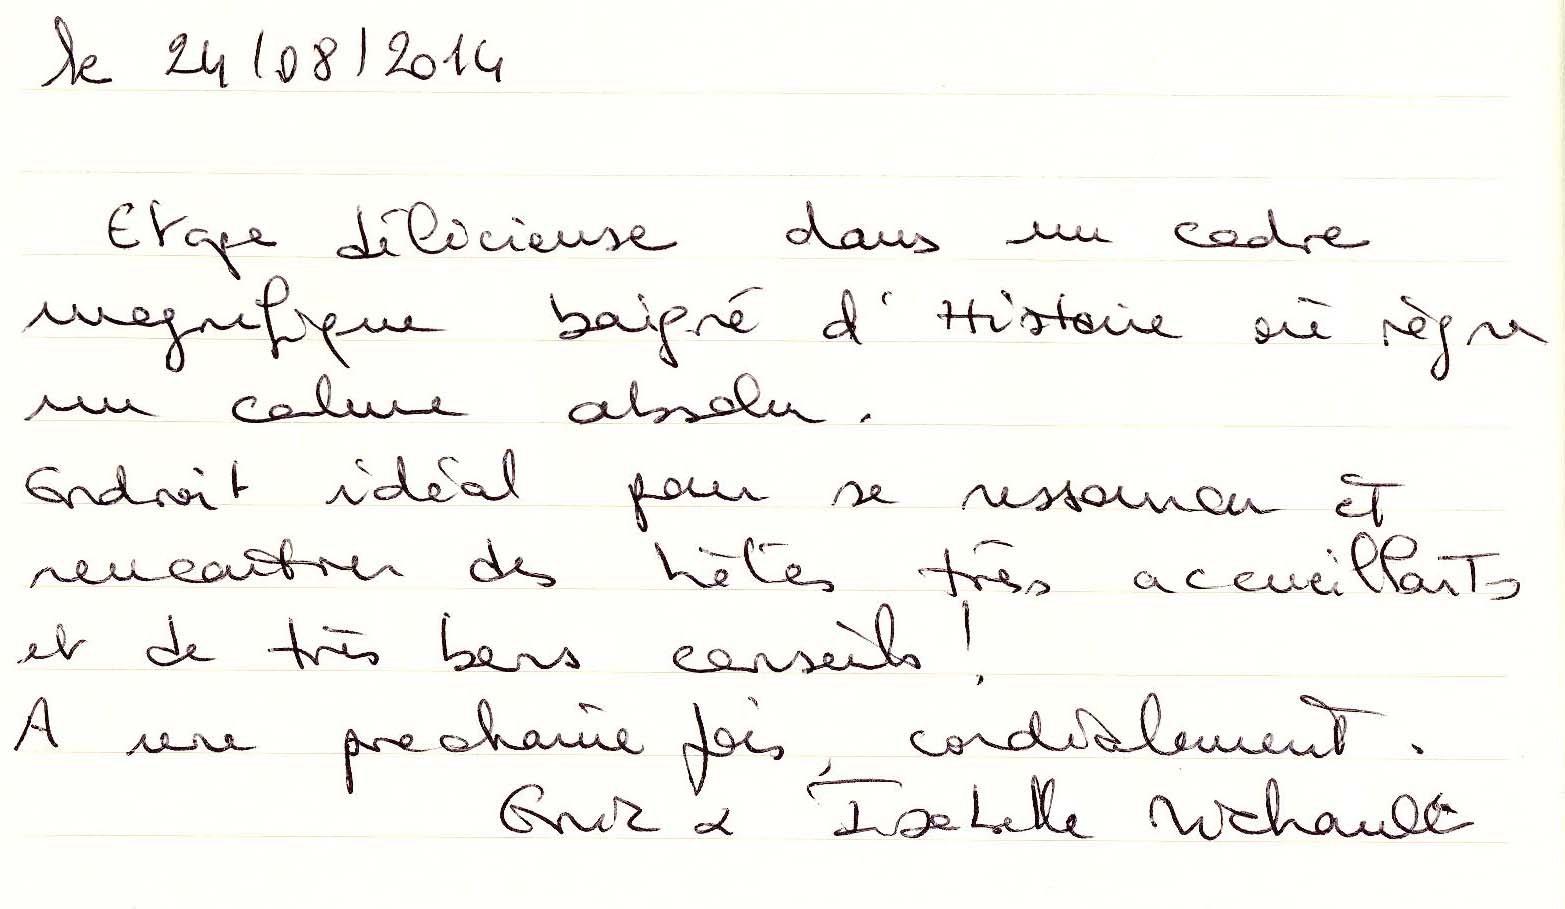 le 24/08/2014
Etape délicieuse dans un cadre
magnifique baigné d'Histoire où règne
un calme absolu.
Endroit idéal pour se ressourcer et
rencontrer des hôtes très accueillants
et de très bons conseils !
A une prochaine fois, cordialement.
& Isabelle Michault